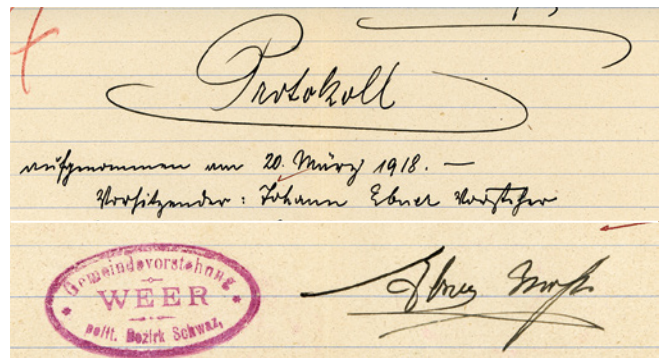 Protokoll
aufgenommen am 20. März 1918. —
Vorsitzender: Johann Ebner Vorsteher
Gemeindevorstehung
WEER
polit. Bezirk Schwaz,
Ebner